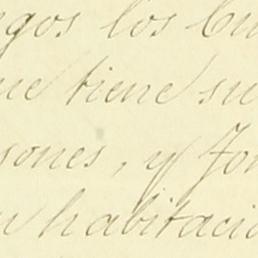 egos los Cu
ue tiene su
sones, y For
u habitacio